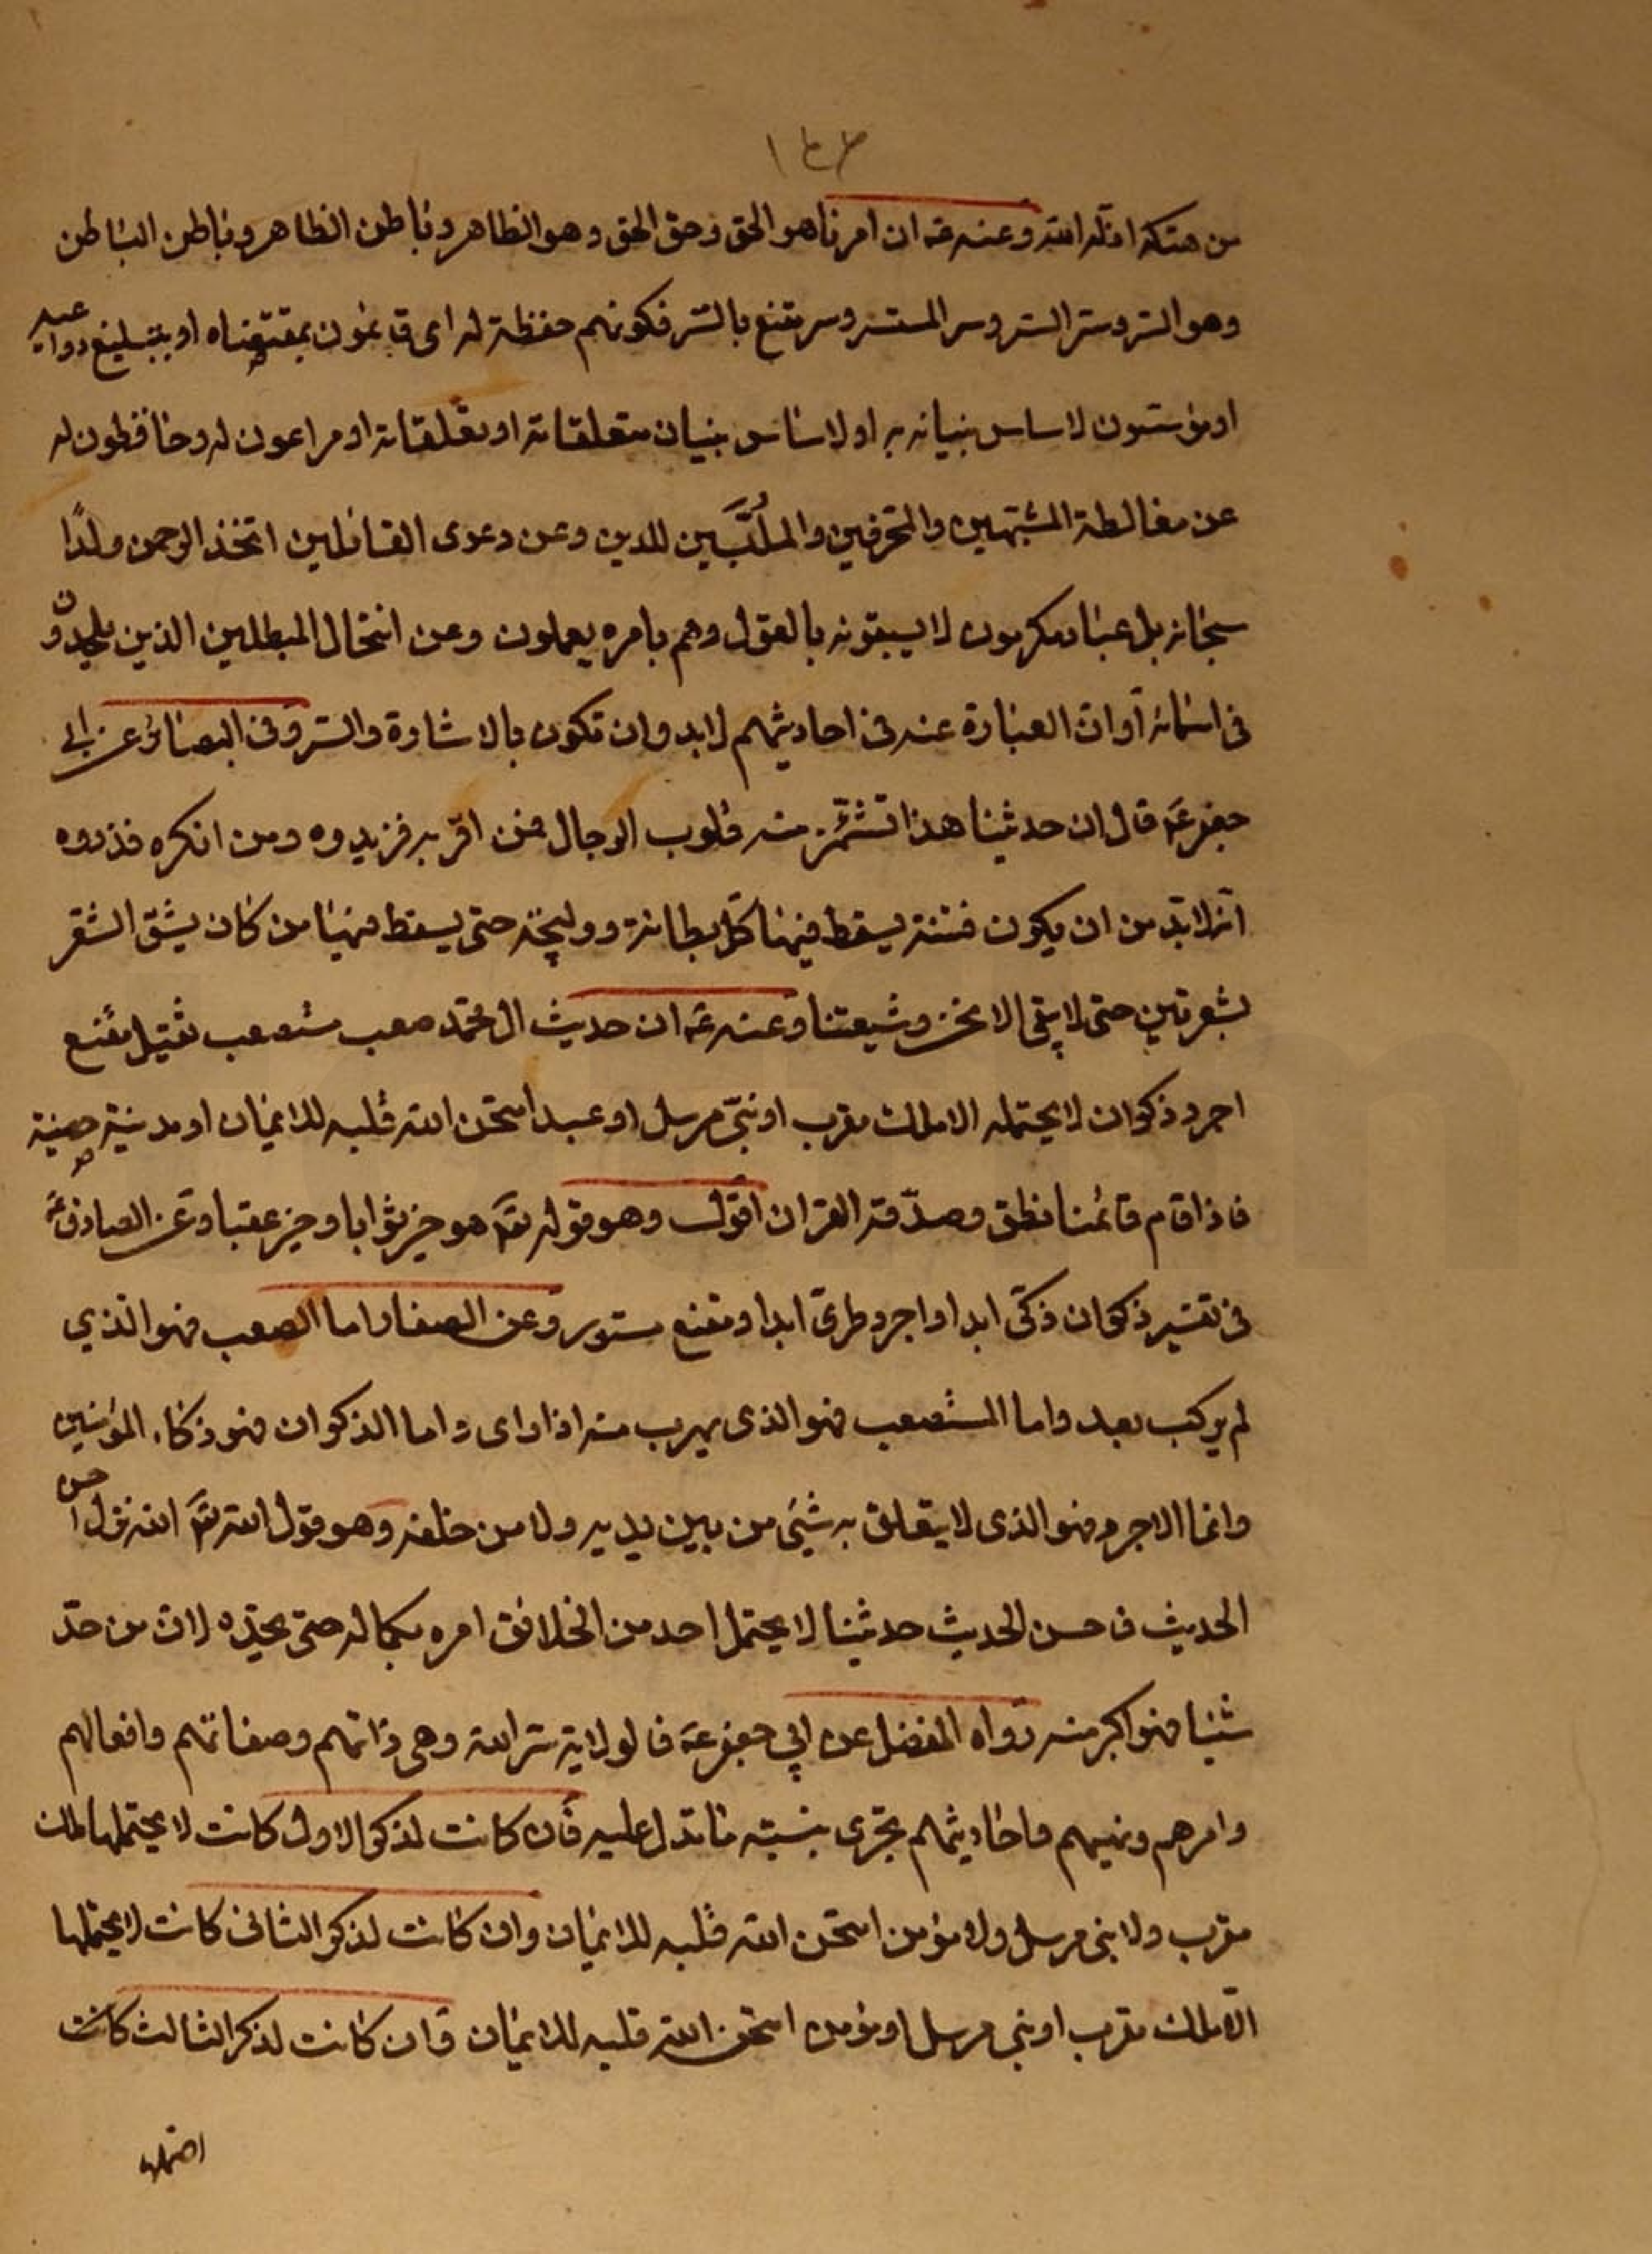 ١٤٣
من هتكه اذله الله وعنه عه ان امرنا هو الحق وحق الحق وهو الظاهر وباطن الظاهر وباطن الباطن
وهو السر وسر السر وسر المستسر وسر مقنع بالسر فكونهم حفظة له اى قائمون بمقتضاه او بتبليغ دواعيه
او مؤسسون لاساس بنيانه به او لاساس بنيان متعلقاته او تعلقاته او مراعون له وحافظون له
عن مغالطة المشبهين والمحرفين والملبّسين للدين وعن دعوى القائلين اتخذ الرحمن ولدًا
سبحانه بل عباد مكرمون لا يسبقونه بالقول وهم بامره يعملون وعن انتحال المبطلين الذين يلحدون
فى اسمائه او ان العبارة عنه فى احاديثهم لابد وان تكون بالاشارة والستر وفى البصائر عن ابى
جعفر عه قال ان حديثنا هذا تشمئز منه قلوب الرجال فمن اقر به فزيدوه ومن انكره فذروه
انه لابد من ان يكون فتنة يسقط فيها كل بطانة ووليجة حتى يسقط فيها من كان يشق الشعر
بشعرتين حتى لا يبقى الا نحن وشيعتنا وعنه عه ان حديث ال محمد صعب مستصعب ثقيل مقنع
اجرد ذكوان لا يحتمله الا ملك مقرب او نبى مرسل او عبد امتحن الله قلبه للايمان او مدينة حصينة
فاذا قام قائمنا نطق وصدقه القران اقول وهو قوله تعه هو خير ثوابا وخير عقبا وعن الصادق عه
فى تفسير ذكوان ذكى ابدا واجرد طرى ابدا ومقنع مستور وعن الصفار اما الصعب فهو الذي
لم يركب بعد واما المستصعب فهو الذى يهرب منه اذا راى واما الذكوان فهو ذكاء المؤمنين
واما الاجرد فهو الذى لا يتعلق به شئ من بين يديه ولا من خلفه وهو قول الله تعه الله نزل احسن
الحديث فاحسن الحديث حديثنا لا يحتمل احد من الخلائق امره بكماله حتى يحده لان من حدّ
شيئا فهو اكبر منه رواه المفضل عن ابي جعفر عه فالولاية سر الله وهى ذاتهم وصفاتهم وافعالهم
وامرهم ونهيهم فاحاديثهم تجرى بنسبته ما تدل عليه فان كانت لذكر الاول كانت لا يحتملها ملك
مقرب ولا نبى مرسل ولا مؤمن امتحن الله قلبه للايمان وان كانت لذكر الثانى كانت لا يحتملها
الا ملك مقرب او نبي مرسل او مؤمن امتحن الله قلبه للايمان وان كانت لذكر الثالث كانت